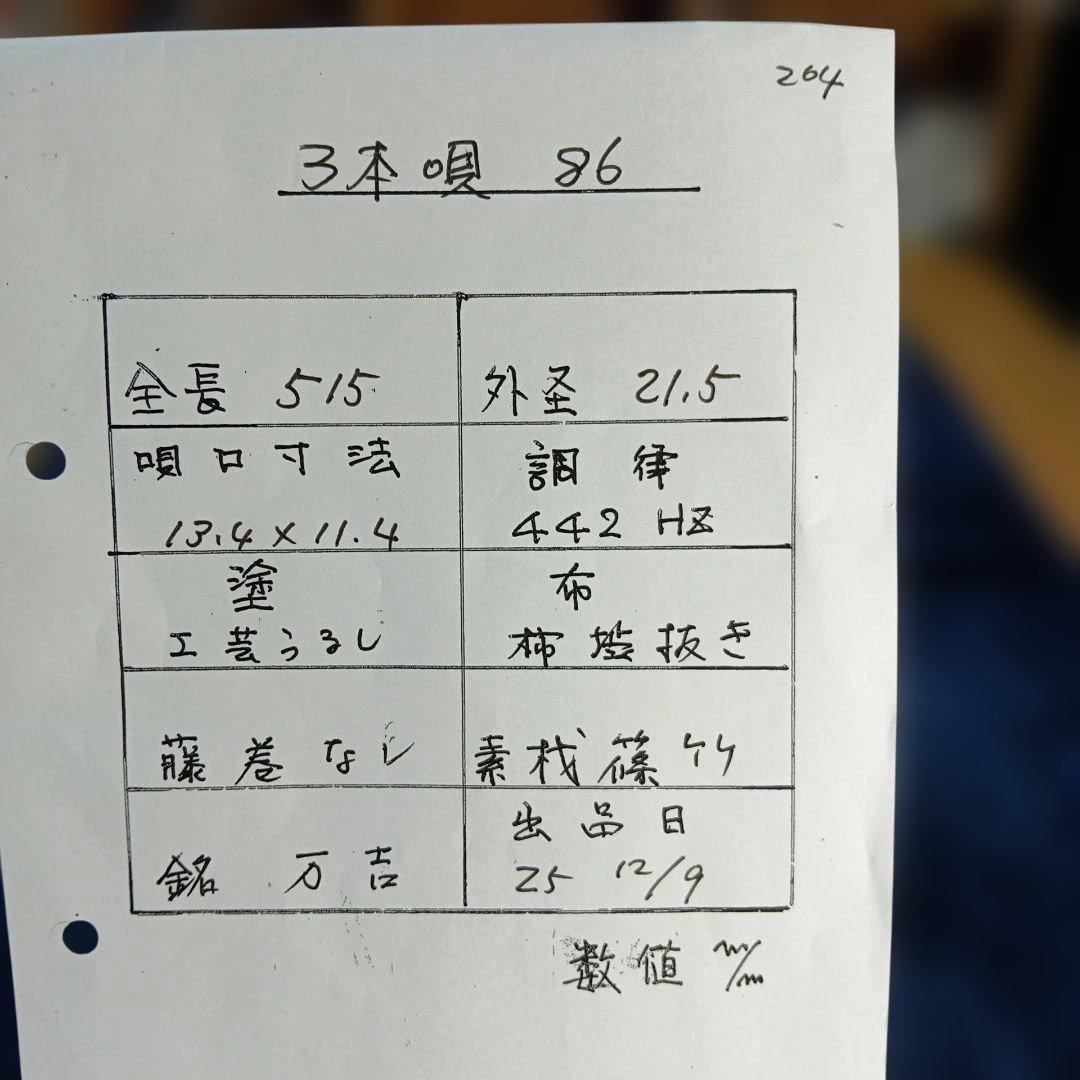 264
3本唄 86
全長 515
外圣 21.5
唄口寸法
13.4×11.4
調律
442 HZ
塗
工芸うるし
布
柿渋抜き
藤巻なし
素材篠竹
銘 万吉
出品日
25 12/9
数値 m/m